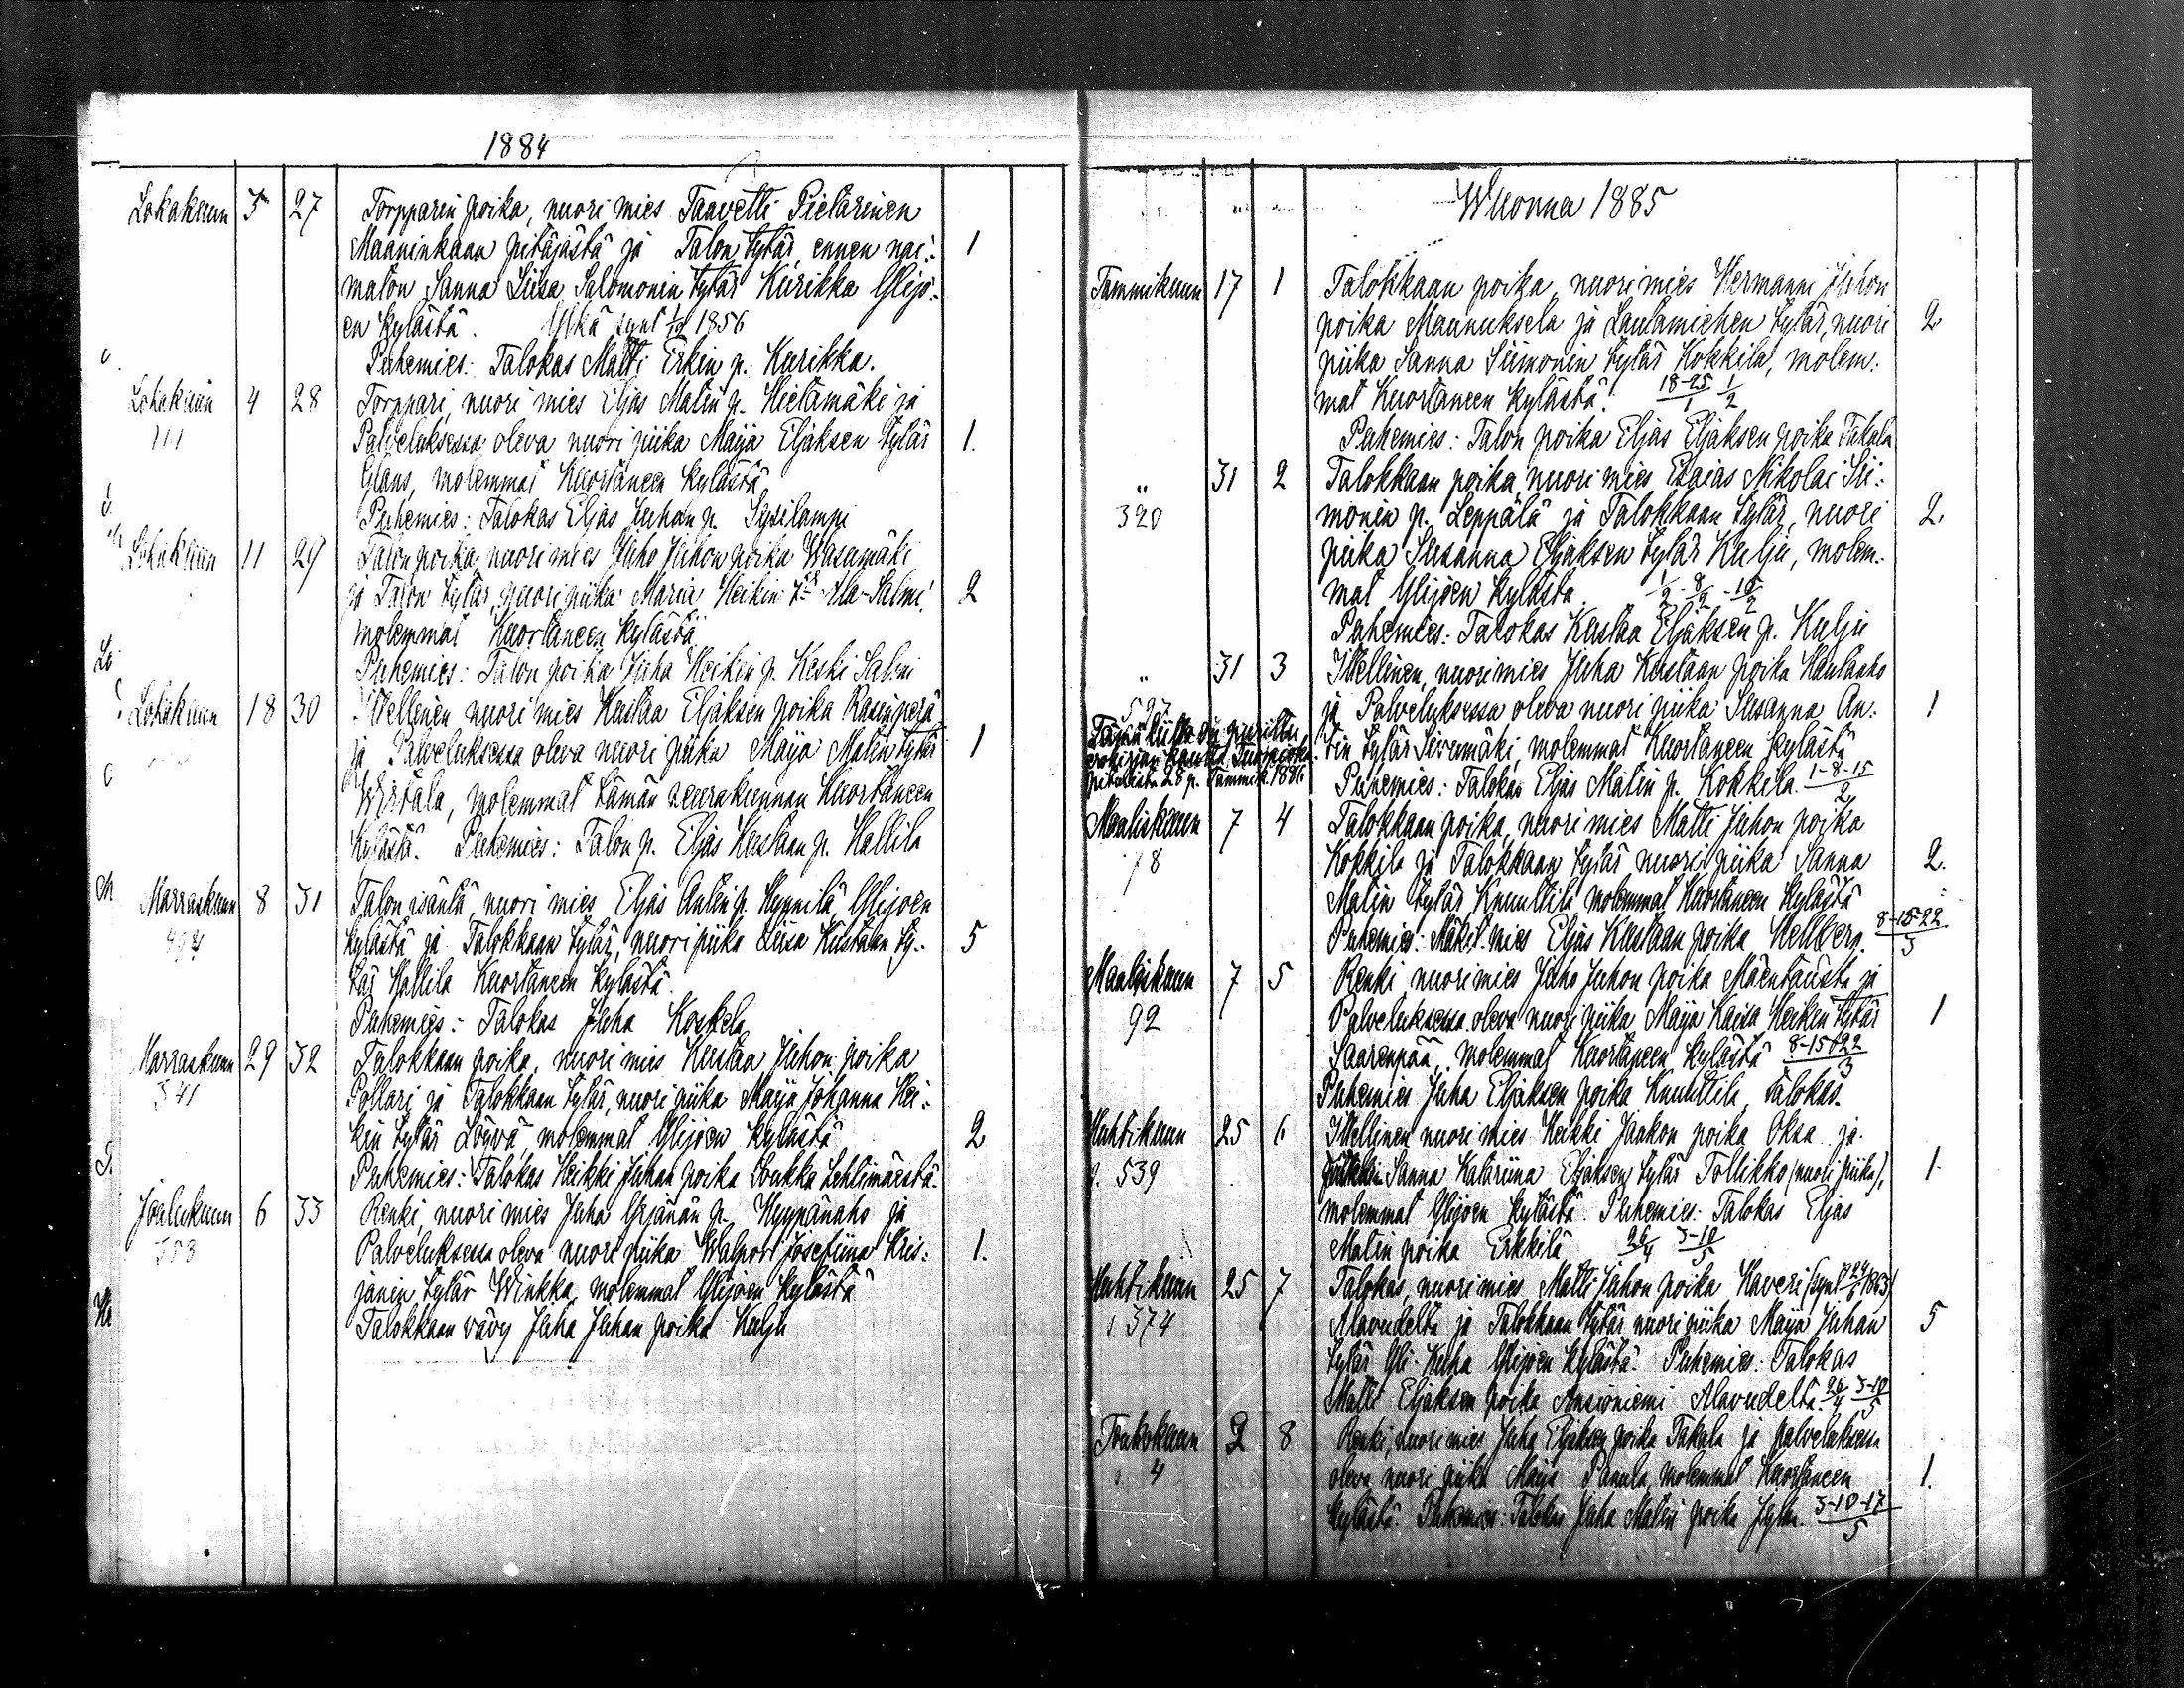 1884
Lokakuun 5 27 Torpparin poika, nuori mies Taavetti Pietarinen
Maaninkaan pitäjästä ja Talon tytär ennen nai- 1
maton Sanna Liisa Salomonin tytär Kurikka Ylijo-
en kylästä. synt 1856
Puhemies: Talokas Matti Erkin p. Kurikka.
Lokakuun 4 28 Torppari, nuori mies Eljas Matin p. Hietamäki ja
111 Palveluksessa oleva nuori piika Maija Eljaksen tytär 1.
Glans, molemmat Kuortaneen kylästä
Puhemies: Talokas Eljas Juhan p. Sysilampi
Lokakuun 11 29 Talon poika, nuori mies Juho Juhon poika Wasumäki
ja Talon tytär, nuori piika Maria Heikin Ala-Salmi, 2
molemmat Kuortaneen kylästä
Puhemies: Talon poika Juha Heikin p. Keski Salmi
Lokakuun 18 30 Itsellinen nuori mies Kustaa Eljaksen poika Rasinperä
ja Palveluksessa oleva nuori piika Maija Matin tytär 1
Wirtala, molemmat tämän seurakunnan Kuortaneen
Kylästä. Puhemies: Talon p. Eljas Kustaan p. Hallila
Marraskuun 8 31 Talon isäntä, nuori mies Eljas Antin p. Hynnilä Ylijoen
494 kylästä ja Talokkaan tytär, nuori piika Liisa Kustaan ty- 5
tär Hallila Kuortaneen kylästä.
Puhemies: Talokas Juha Koskela
Marraskuun 29 32 Talokkaan poika, nuori mies Kustaa Juhon poika
341 Pollari ja Talokkaan tytär, nuori piika Maija Johanna Hei-
kin tytär molemmat Ylijoen kylästä 2
Puhemies: Talokas Heikki Juhan poika Lehtimäestä.
Joulukuun 6 33 Renki, nuori mies Juha Yrjänän p. Hyypänaho ja
Palveluksessa oleva nuori piika Walpori Josefiina Kris- 1.
janin tytär Winkka, molemmat Ylijoen kylästä
Talokkaan vävy Juha Juhan poika Kulju
Wuonna 1885
Tammikuun 17 1 Talokkaan poika, nuori mies Hermanni Juhon
poika Mannuksela ja Lautamiehen tytär, nuori 2
piika Sanna Siimonin tytär Kokkila, molem-
mat Kuortaneen kylästä. 18-25/1 1/2
Puhemies: Talon poika Eljas Eljaksen poika Takala
" 31 2 Talokkaan poika nuori mies Esaias Nikolai Sii-
320 monin p. Leppälä ja Talokkaan tytär, nuori 2.
piika Susanna Eljaksen tytär Kulju, molem-
mat Ylijoen kylästä. 1/2 - 8/2 - 15/2
Puhemies: Talokas Kustaa Eljaksen p. Kulju
" 31 3 Itsellinen, nuori mies Juha Kustaan poika Hautaaho
597 ja Palveluksessa oleva nuori piika Susanna An- 1
tin tytär Sivenmäki, molemmat Kuortaneen kylästä
Tämä liitto on purettu
28 p. Tammik. 1886
Puhemies: Talokas Eljas Matin p. Kokkila. 1-8-15/2
Maaliskuun 7 4 Talokkaan poika, nuori mies Matti Juhon poika
78 Kokkila ja Talokkaan tytär nuori piika Sanna 2.
Matin tytär Knuuttila molemmat Kuortaneen kylästä
Puhemies: mies Eljas Kustaan poika Hellberg. 8-15-22/3
Maaliskuun 7 5 Renki, nuori mies Juho Juhon poika Mäentausta ja
92 Palveluksessa oleva nuori piika Maija Kaisa Heikin tytär 1
Saarenpää, molemmat Kuortaneen kylästä 8-15-22/3
Puhemies Juha Eljaksen poika Knuuttila, Talokas.
Huhtikuun 25 6 Itsellinen nuori mies Heikki Jaakon poika Oksa ja
s. 539 Sanna Katariina Eljaksen tytär Tollikko (nuori piika), 1.
molemmat Ylijoen kylästä. Puhemies: Talokas Eljas
Matin poika Erkkilä 26/4 3-10/5
Huhtikuun 25 7 Talokas, nuori mies Matti Juhon poika Kaveri
s. 374 Alavudelta ja Talokkaan tytär nuori piika Maija Juhan 5
tytär Yli-Kuha Ylijoen kylästä. Puhemies: Talokas
Matti Eljaksen poika Alavudelta. 26/4 3-10/5
Toukokuun 2 8 Renki, nuori mies Juha Eljaksen poika Takala ja palveluksessa
s. 4 oleva nuori piika Maija Panula, molemmat Kuortaneen 1.
kylästä. Puhemies: Talokas Juha Matin poika 3-10-17/5